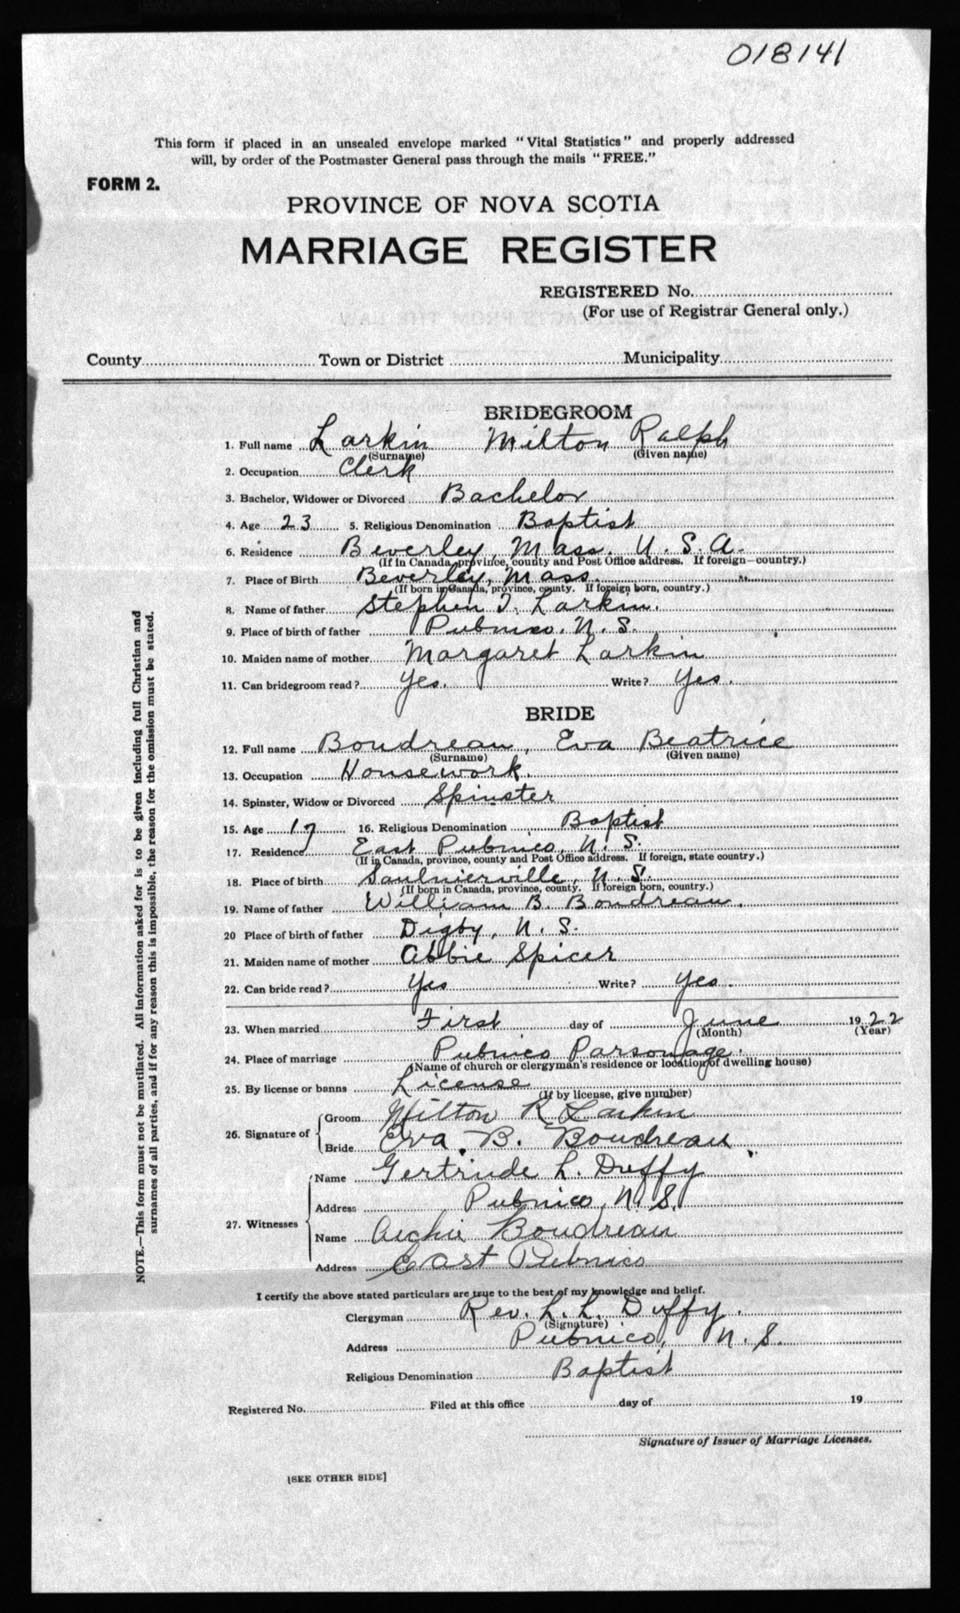 018141
This form if placed in an unsealed envelope marked "Vital Statistics" and properly addressed
will, by order of the Postmaster General pass through the mails "FREE."
FORM 2.
PROVINCE OF NOVA SCOTIA
MARRIAGE REGISTER
REGISTERED No.
(For use of Registrar General only.)
County Town or District Municipality
BRIDEGROOM
1. Full name Larkin Milton Ralph
(Surname) (Given name)
2. Occupation Clerk
3. Bachelor, Widower or Divorced Bachelor
4. Age 23 5. Religious Denomination Baptist
6. Residence Beverley, Mass. U. S. A.
(If in Canada, province, county and Post Office address. If foreign—country.)
7. Place of Birth Beverley, Mass.
(If born in Canada, province, county. If foreign born, country.)
8. Name of father Stephen T. Larkin.
9. Place of birth of father Pubnico, N. S.
10. Maiden name of mother Margaret Larkin
11. Can bridegroom read? Yes. Write? Yes.
BRIDE
12. Full name Boudreau, Eva Beatrice
(Surname) (Given name)
13. Occupation Housework.
14. Spinster, Widow or Divorced Spinster
15. Age 17 16. Religious Denomination Baptist
17. Residence East Pubnico, N. S.
(If in Canada, province, county and Post Office address. If foreign, state country.)
18. Place of birth Saulnierville, N. S.
(If born in Canada, province, county. If foreign born, country.)
19. Name of father William B. Boudreau.
20 Place of birth of father Digby, N. S.
21. Maiden name of mother Abbie Spicer
22. Can bride read? Yes Write? Yes.
23. When married First day of June 1922
(Month) (Year)
24. Place of marriage Pubnico Parsonage.
(Name of church or clergyman's residence or location of dwelling house)
25. By license or banns License
(If by license, give number)
26. Signature of Groom Milton R Larkin
Bride Eva B. Boudreau
27. Witnesses Name Gertrude L. Duffy
Address Pubnico, N. S.
Name Archie Boudreau
Address East Pubnico
I certify the above stated particulars are true to the best of my knowledge and belief.
Clergyman Rev. L. L. Duffy.
(Signature)
Address Pubnico, N. S.
Religious Denomination Baptist
Registered No. Filed at this office day of 19
Signature of Issuer of Marriage Licenses.
[SEE OTHER SIDE]
NOTE.—This form must not be mutilated. All information asked for is to be given including full Christian and
surnames of all parties, and if for any reason this is impossible, the reason for the omission must be stated.